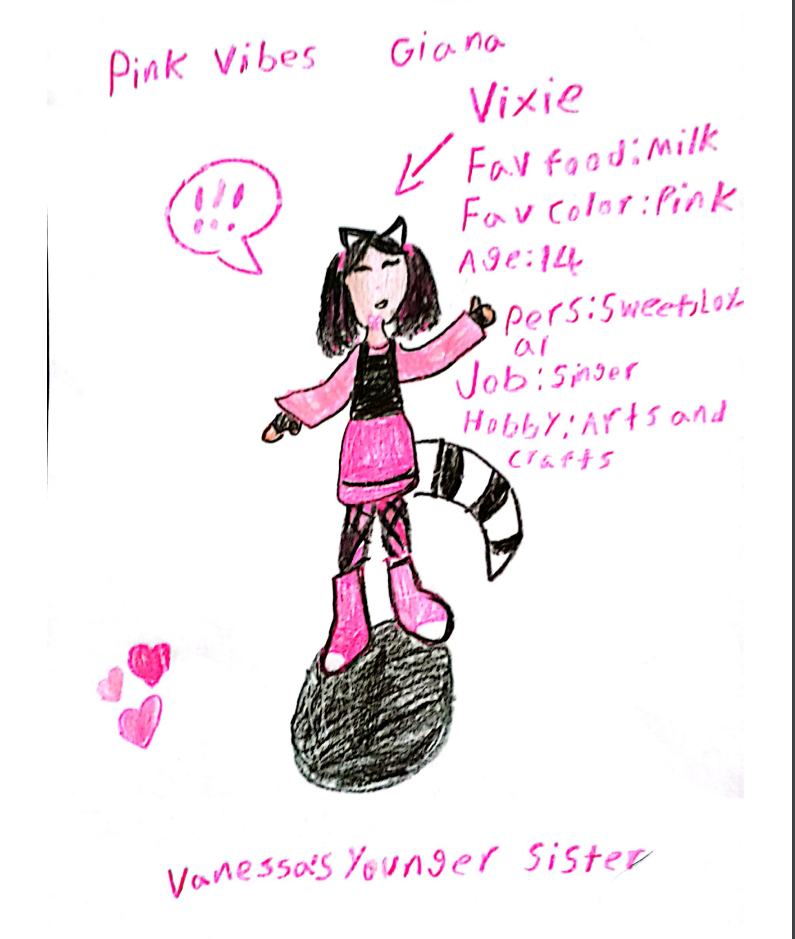 Pink Vibes Giana
Vixie
Fav food:Milk
Fav color:Pink
Age:14
!!!
pers:sweet,Loy
al
Job:singer
Hobby:Arts and
crafts
Vanessa's Younger Sister